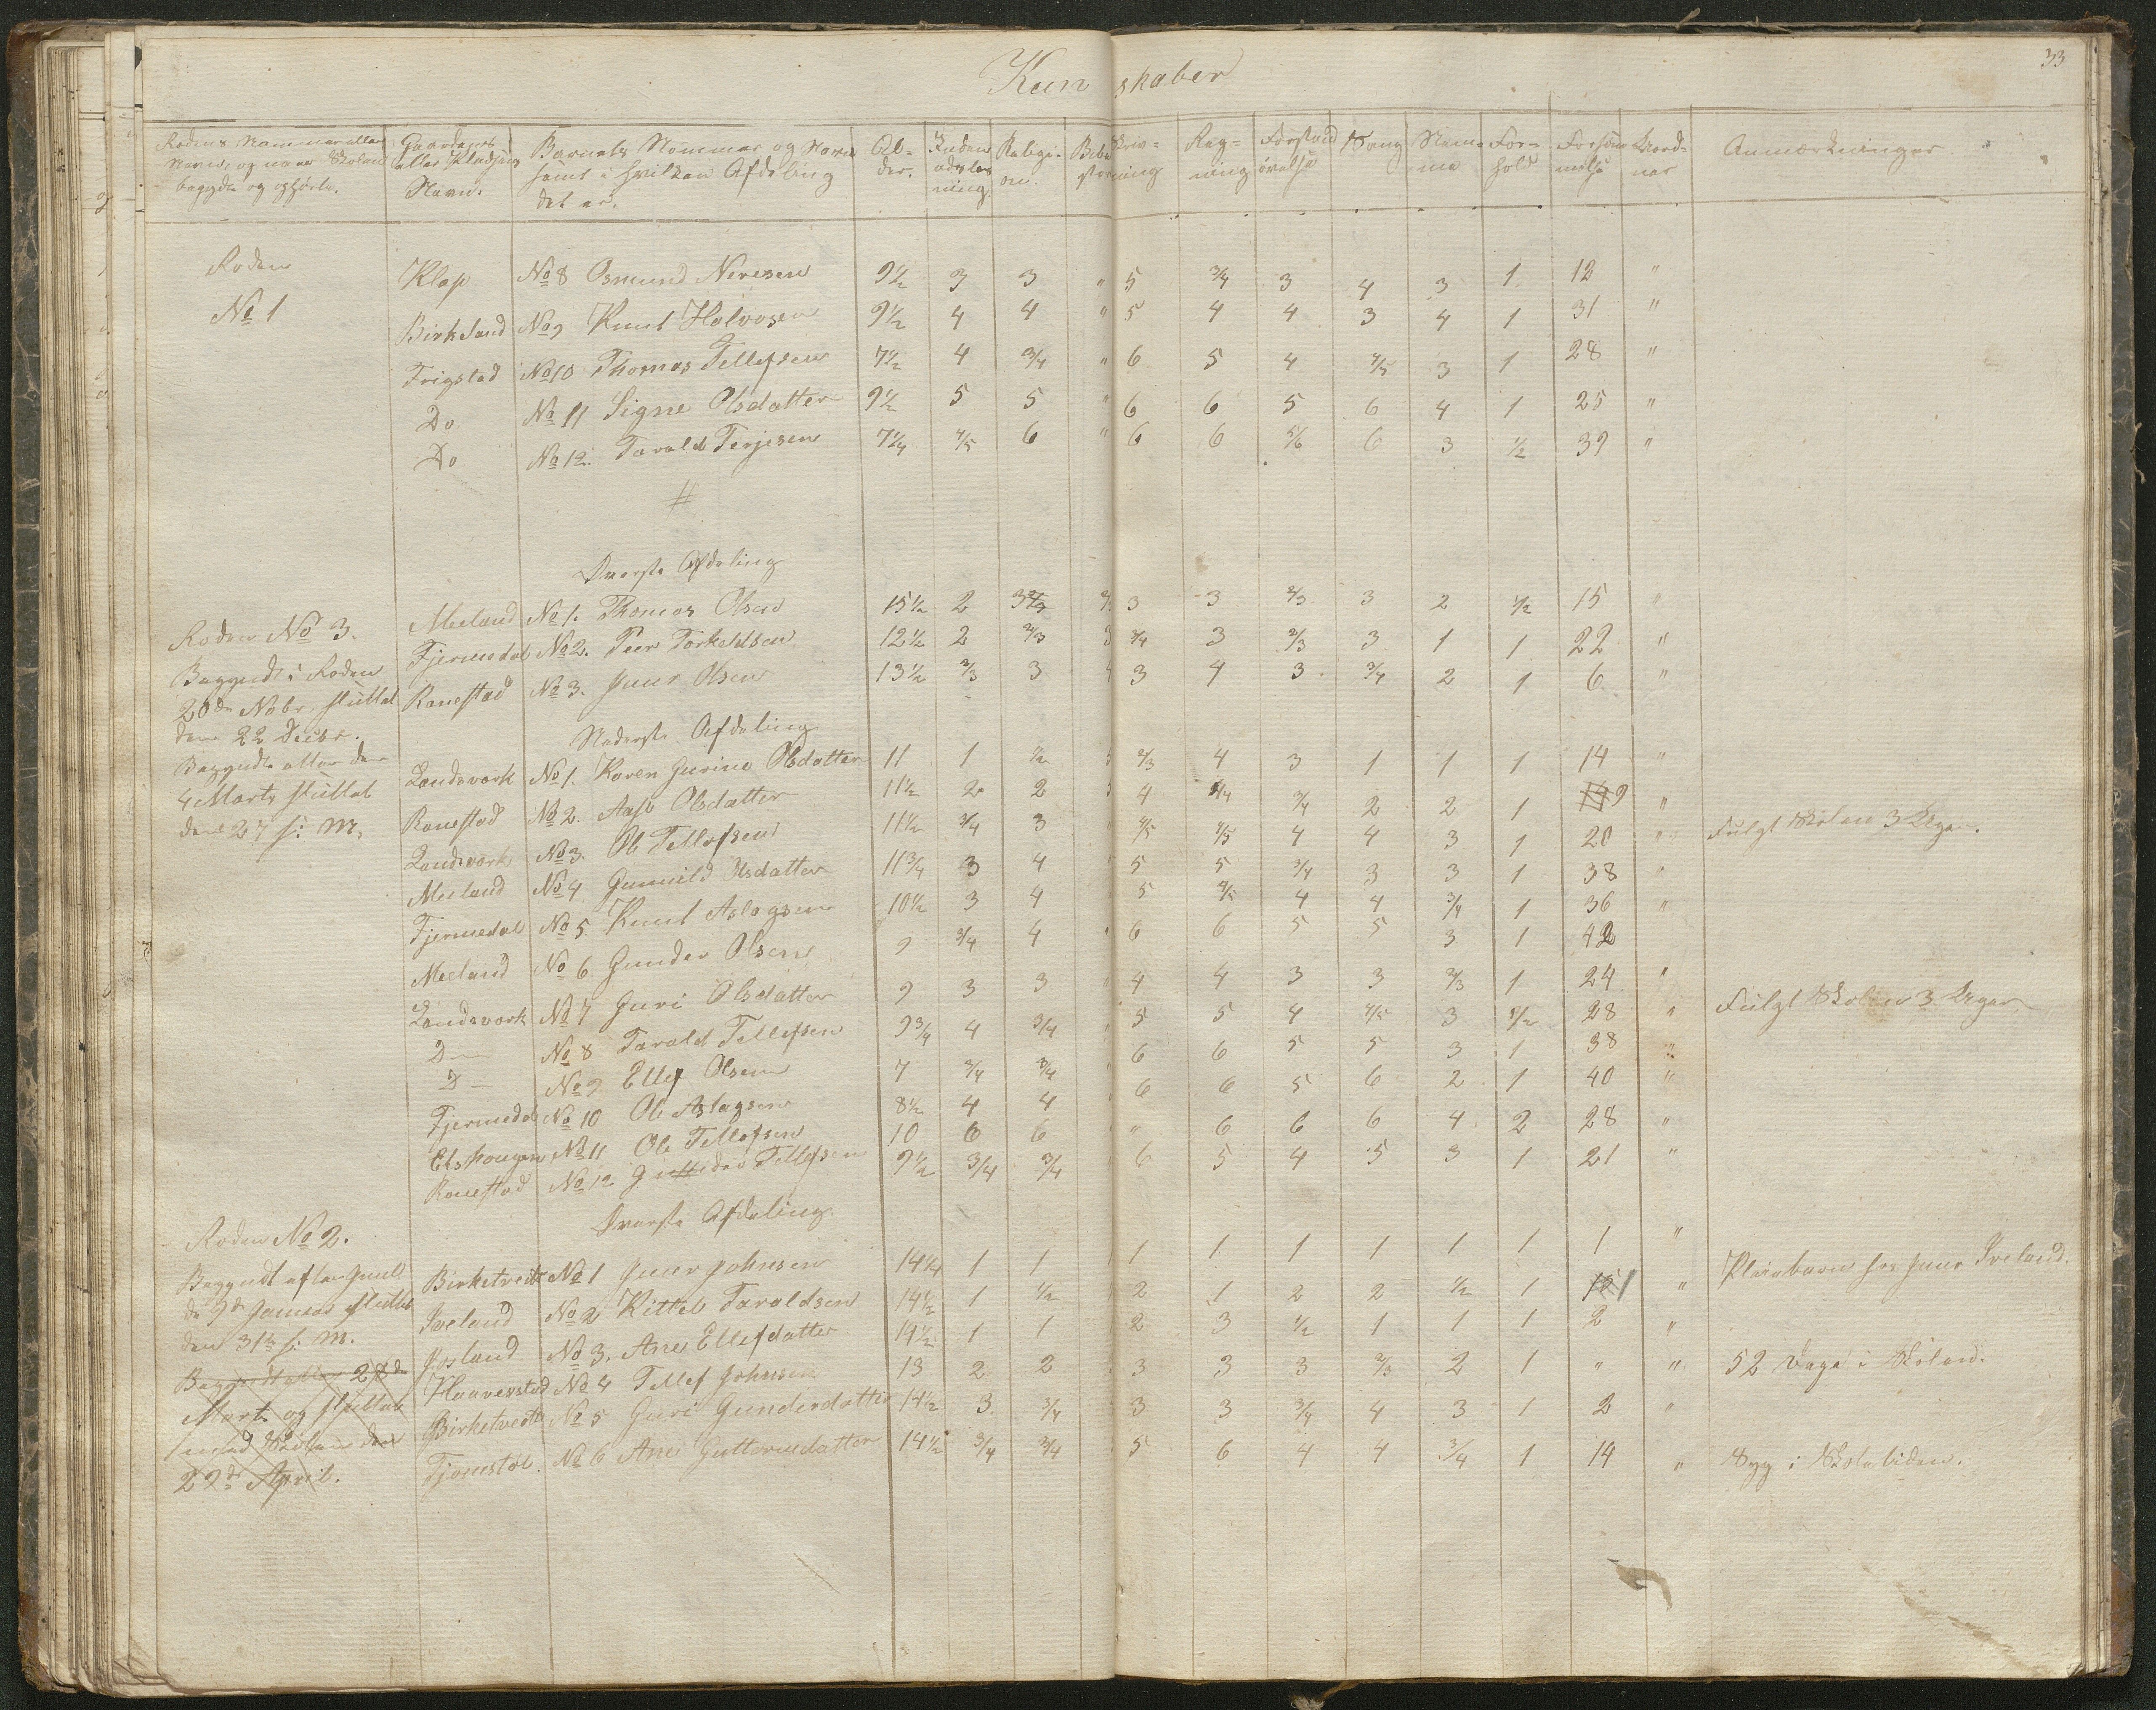 33
Kun skaber
Rodens Nummer eller Navn, og naar Skolen begyndte og ophørte. Gaardenes eller Pladsens Navn. Barnets Nommer og Navn samt i hvilken Afdeling det er. Al- der. Inden ads læs ning. Religi- on. Skriv- ning Reg- ning Forstand øvelse Sang Nem- me For- hold Forsøm melse Anmærkninger
Roden Klep No 8 Osmund Neresen 9½ 3 3 " 5 3/4 3 4 3 1 12 "
No 1 Birkeland No 9 Knut Halvosen 9½ 4 4 " 5 4 4 3 4 1 31 "
Frigstad No 10 Thomas Tellefsen 7½ 4 3/4 " 6 5 4 4/5 3 1 28 "
Do No 11 Signe Olsdatter 9½ 5 5 " 6 6 5 6 4 1 25 "
Do No 12. Tarald Terjesen 7¼ 4/5 6 " 6 6 5/6 6 3 ½ 39 "
#
Øverste Afdeling
Roden No 3. Meeland No 1. Thomas Olsen 15½ 2 3 3 3 2/3 3 2 ½ 15 "
Begyndt i Roden Fjermedal No 2. Peer Torkeldsen 12½ 2 2/3 3 3/4 3 2/3 3 1 1 22 "
20de Nobr. sluttet Ranestad No 3. Gunr Olsen 13½ 2/3 3 3 4 3 3/4 2 1 6 "
den 22 Decbr. Nederste Afdeling
Begyndte atter den Landsvark No 1. Karen Gurine Olsdatter 11 1 ½ 2/3 4 3 1 1 1 14 "
4 Marts sluttet Ranestad No 2. Aase Olsdatter 11½ 2 2 4 3/4 2 2 1 9 "
den 27 s: M. Landsvark No 3. Ole Tellefsen 11½ 3/4 3 4/5 4/5 4 4 3 1 20 " Fulgt Skolen 3 Uger.
Meeland No 4 Gunnild Olsdatter 11¾ 3 4 5 5 3/4 3 3 1 38 "
Fjermedal No 5 Knut Aslagsen 10½ 3 4 5 4/5 4 4 3/4 1 36 "
Meeland No 6 Gunder Olsen 9 3/4 4 6 6 5 5 3 1 42
Landsvark No 7 Guri Olsdatter 9 3 3 4 4 3 3 2/3 1 24 "
D— No 8 Tarald Tellefsen 9¾ 4 3/4 5 5 4 4/5 3 ½ 28 " Fulgt Skolen 3 Uger
D— No 9 Ellef Olsen 7 3/4 3/4 6 6 5 5 3 1 38 "
Fjermedal No 10 Ole Aslagsen 8½ 4 4 6 6 5 6 2 1 40 "
No 11 Ole Tellefsen 10 6 6 " 6 6 6 4 2 28 "
Ranestad No 12 Tellefsen 9½ 3/4 3/4 6 5 4 5 3 1 21 "
Øverste Afdeling.
Roden No 2.
Begyndt efter Birketveit No 1 Gunr Johnsen 14¼ 1 1 1 1 1 1 1 1 1 "
de 9de Januar sluttet Iveland No 2 Kittel Taraldsen 14½ 1 ½ 2 1 2 2 ½ 1 1 " Pleiebarn hos Gunr Iveland.
den 31te s: M. Josland No 3. Ane Ellefdatter 14½ 1 1 2 3 ½ 1 1 1 2 "
Begyndt atter 28de Haaverstad No 4 Tellef Johnsen 13 2 2 3 3 3 2/3 2 1 " " 52 Dage i Skolen.
Marts og sluttet Birketveit No 5 Guri Gundersdatter 14½ 3 3/4 3 3 3/4 4 3 1 2 "
med Skolen den Tjomstøl. No 6 Ane Guttormsdatter 14½ 3/4 3/4 5 6 4 4 3/4 1 14 " Syg i Skoletiden.
22de April.